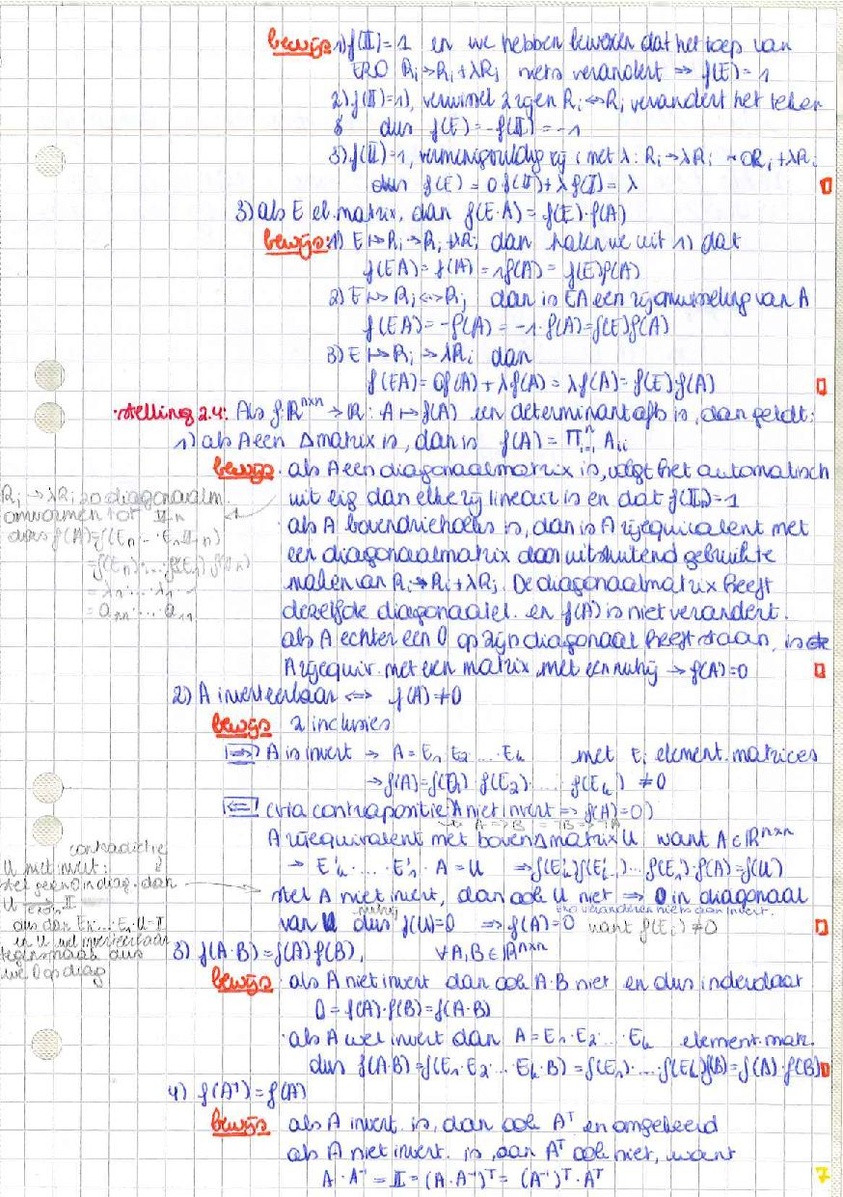 bewijs: 1) f(𝕀)=1 en we hebben bewezen dat het toep van
ERO Ri→Ri+λRj niets verandert ⇒ f(E)=1
2) f(𝕀)=1, verwissel 2 rijen Ri↔Rj verandert het teken
dus f(E)=-f(𝕀)=-1
3) f(𝕀)=1, vermenigvuldig rij i met λ: Ri→λRi ~ 0Ri+λRi
dus f(E)=0f(𝕀)+λf(𝕀)=λ
3) als E el. matrix, dan f(E·A)=f(E)·f(A)
bewijs: 1) E↦Ri→Ri+λRj dan halen we uit 1) dat
f(EA)=f(A)=1f(A)=f(E)f(A)
2) E↦Ri↔Rj dan is EA een rijomwisseling van A
f(EA)=-f(A)=-1·f(A)=f(E)f(A)
3) E↦Ri→λRi dan
f(EA)=0f(A)+λf(A)=λf(A)=f(E)f(A)
·stelling 2.4: Als f:ℝⁿˣⁿ→ℝ: A↦f(A) een determinantafb is, dan geldt:
1) als A een Δmatrix is, dan is f(A)=∏ᵢ₌₁ⁿ Aii
bewijs · als A een diagonaalmatrix is, volgt het automatisch
Ri→λRi zo diagonaalm.
uit eig dan elke rij lineair is en dat f(𝕀n)=1
omvormen tot 𝕀n
dus f(A)=f(En·...·E1·𝕀n)
· als A bovendriehoeks is, dan is A rijequivalent met
een diagonaalmatrix door uitsluitend gebruik te
=f(En)·...·f(E1)f(𝕀n)
=λn·...·λ1·1
maken van Ri→Ri+λRj. De diagonaalmatrix heeft
=ann·...·a11
dezelfde diagonaalel. en f(A) is niet verandert.
als A echter een 0 op zijn diagonaal heeft staan, is
A rijequiv. met een matrix met een nulrij → f(A)=0
2) A inverteerbaar ⇔ f(A)≠0
bewijs 2 inclusies
⇒ A is invert → A=E1·E2·...·Ek met Ei element. matrices
→f(A)=f(E1)·f(E2)·...·f(Ek)≠0
⇐ (via contrapositie: A niet invert ⇒ f(A)=0)
A⇒B ¬B⇒¬A
A rijequivalent met bovenΔmatrix U want A∈ℝⁿˣⁿ
contradictie
→ E'k·...·E'1·A=U ⇒f(E'k)f(E'k-1)...f(E1)·f(A)=f(U)
U niet invert:
stel geen 0 in diag. dan
stel A niet invert, dan ook U niet ⇒ 0 in diagonaal
U → 𝕀
nulrij ERO veranderen niets aan invert.
van U dus f(U)=0 ⇒f(A)=0 want f(Ei)≠0
dus dan Ek·...E1·U=𝕀
en U wel inverteerbaar
tegenspraak dus
wel 0 op diag
3) f(A·B)=f(A)f(B), ∀A,B∈ℝⁿˣⁿ
bewijs · als A niet invert dan ook A·B niet en dus inderdaad
0=f(A)·f(B)=f(A·B)
·als A wel invert dan A=E1·E2·...·Ek element. mat.
dus f(A·B)=f(E1·E2·...Ek·B)=f(E1)·...·f(Ek)f(B)=f(A)·f(B)
4) f(Aᵀ)=f(A)
bewijs als A invert. is, dan ook Aᵀ en omgekeerd
als A niet invert. is, dan Aᵀ ook niet, want
A·A⁻¹=𝕀=(A·A⁻¹)ᵀ=(A⁻¹)ᵀ·Aᵀ
7